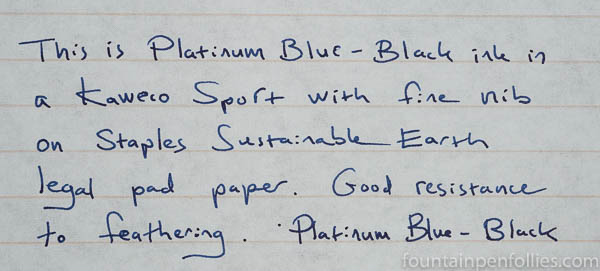 This is Platinum Blue-Black ink in
a Kaweco Sport with fine nib
on Staples Sustainable Earth
legal pad paper. Good resistance
to feathering. Platinum Blue-Black
fountainpenfollies.com